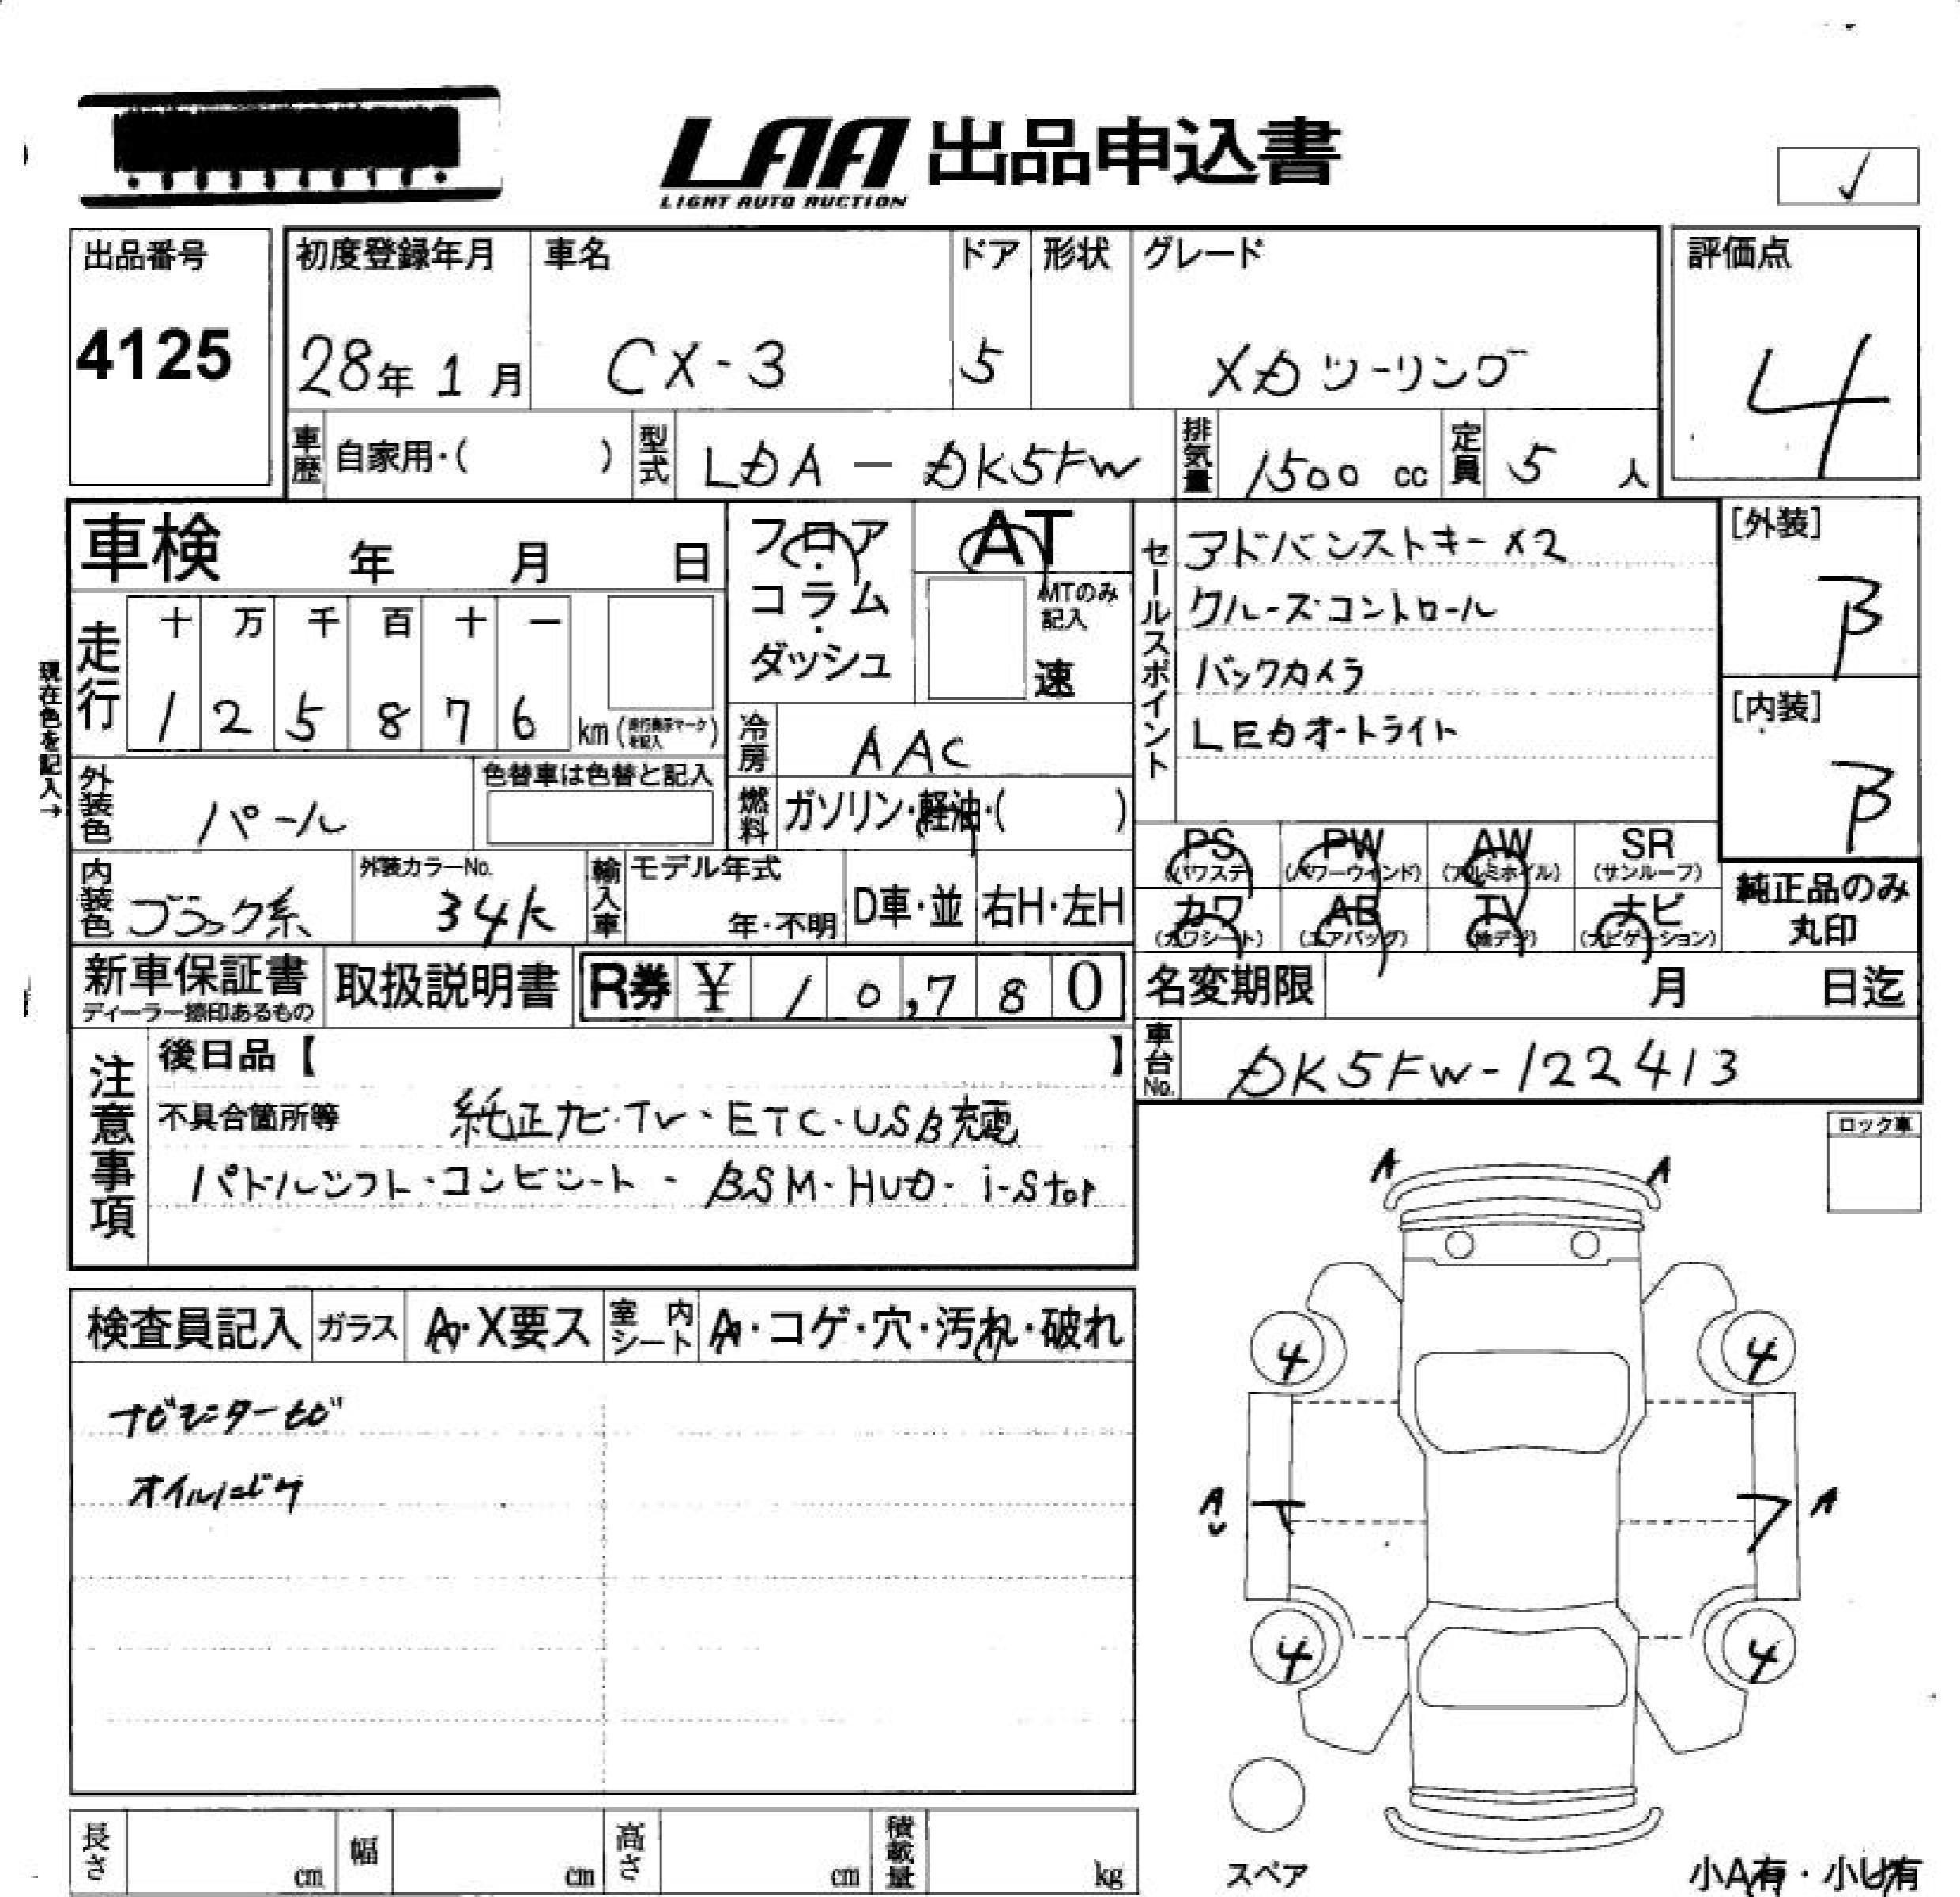 LAA 出品申込書
LIGHT AUTO AUCTION
✓
出品番号
4125
初度登録年月
28年 1月
車名
CX-3
ドア
5
形状
グレード
XDツーリング
評価点
4
車歴 自家用・( )
型式 LDA - DK5FW
排気量 1500 cc
定員 5 人
車検 年 月 日
フロア
コラム
ダッシュ
AT
MTのみ記入
速
セールスポイント
アドバンストキー×2
クルーズコントロール
バックカメラ
LEDオートライト
[外装]
B
[内装]
B
現在色を記入→
走行
十 万 千 百 十 一
1 2 5 8 7 6 km
冷房 AAC
燃料 ガソリン・軽油・( )
外装色 パール
色替車は色替と記入
内装色 ブラック系
外装カラーNo.
34K
輸入車 モデル年式
年・不明
D車・並
右H・左H
PS (パワステ)
PW (パワーウインド)
AW (アルミホイル)
SR (サンルーフ)
カワ (カワシート)
AB (エアバッグ)
TV (地デジ)
ナビ (ナビゲーション)
純正品のみ
丸印
新車保証書
ディーラー捺印あるもの
取扱説明書
R券 ¥ 10,780
名変期限 月 日迄
車台No. DK5FW-122413
注意事項
後日品【 】
不具合箇所等 純正ナビ・TV・ETC・USB充電
パドルシフト・コンビシート・BSM・HUD・i-stop
ロック車
A A
検査員記入
ガラス A・X要ス
室内シート A・コゲ・穴・汚れ・破れ
ナビモニターヒビ
オイルにじみ
4 4
A A
4 4
スペア
小A有・小U有
長さ cm
幅 cm
高さ cm
積載量 kg